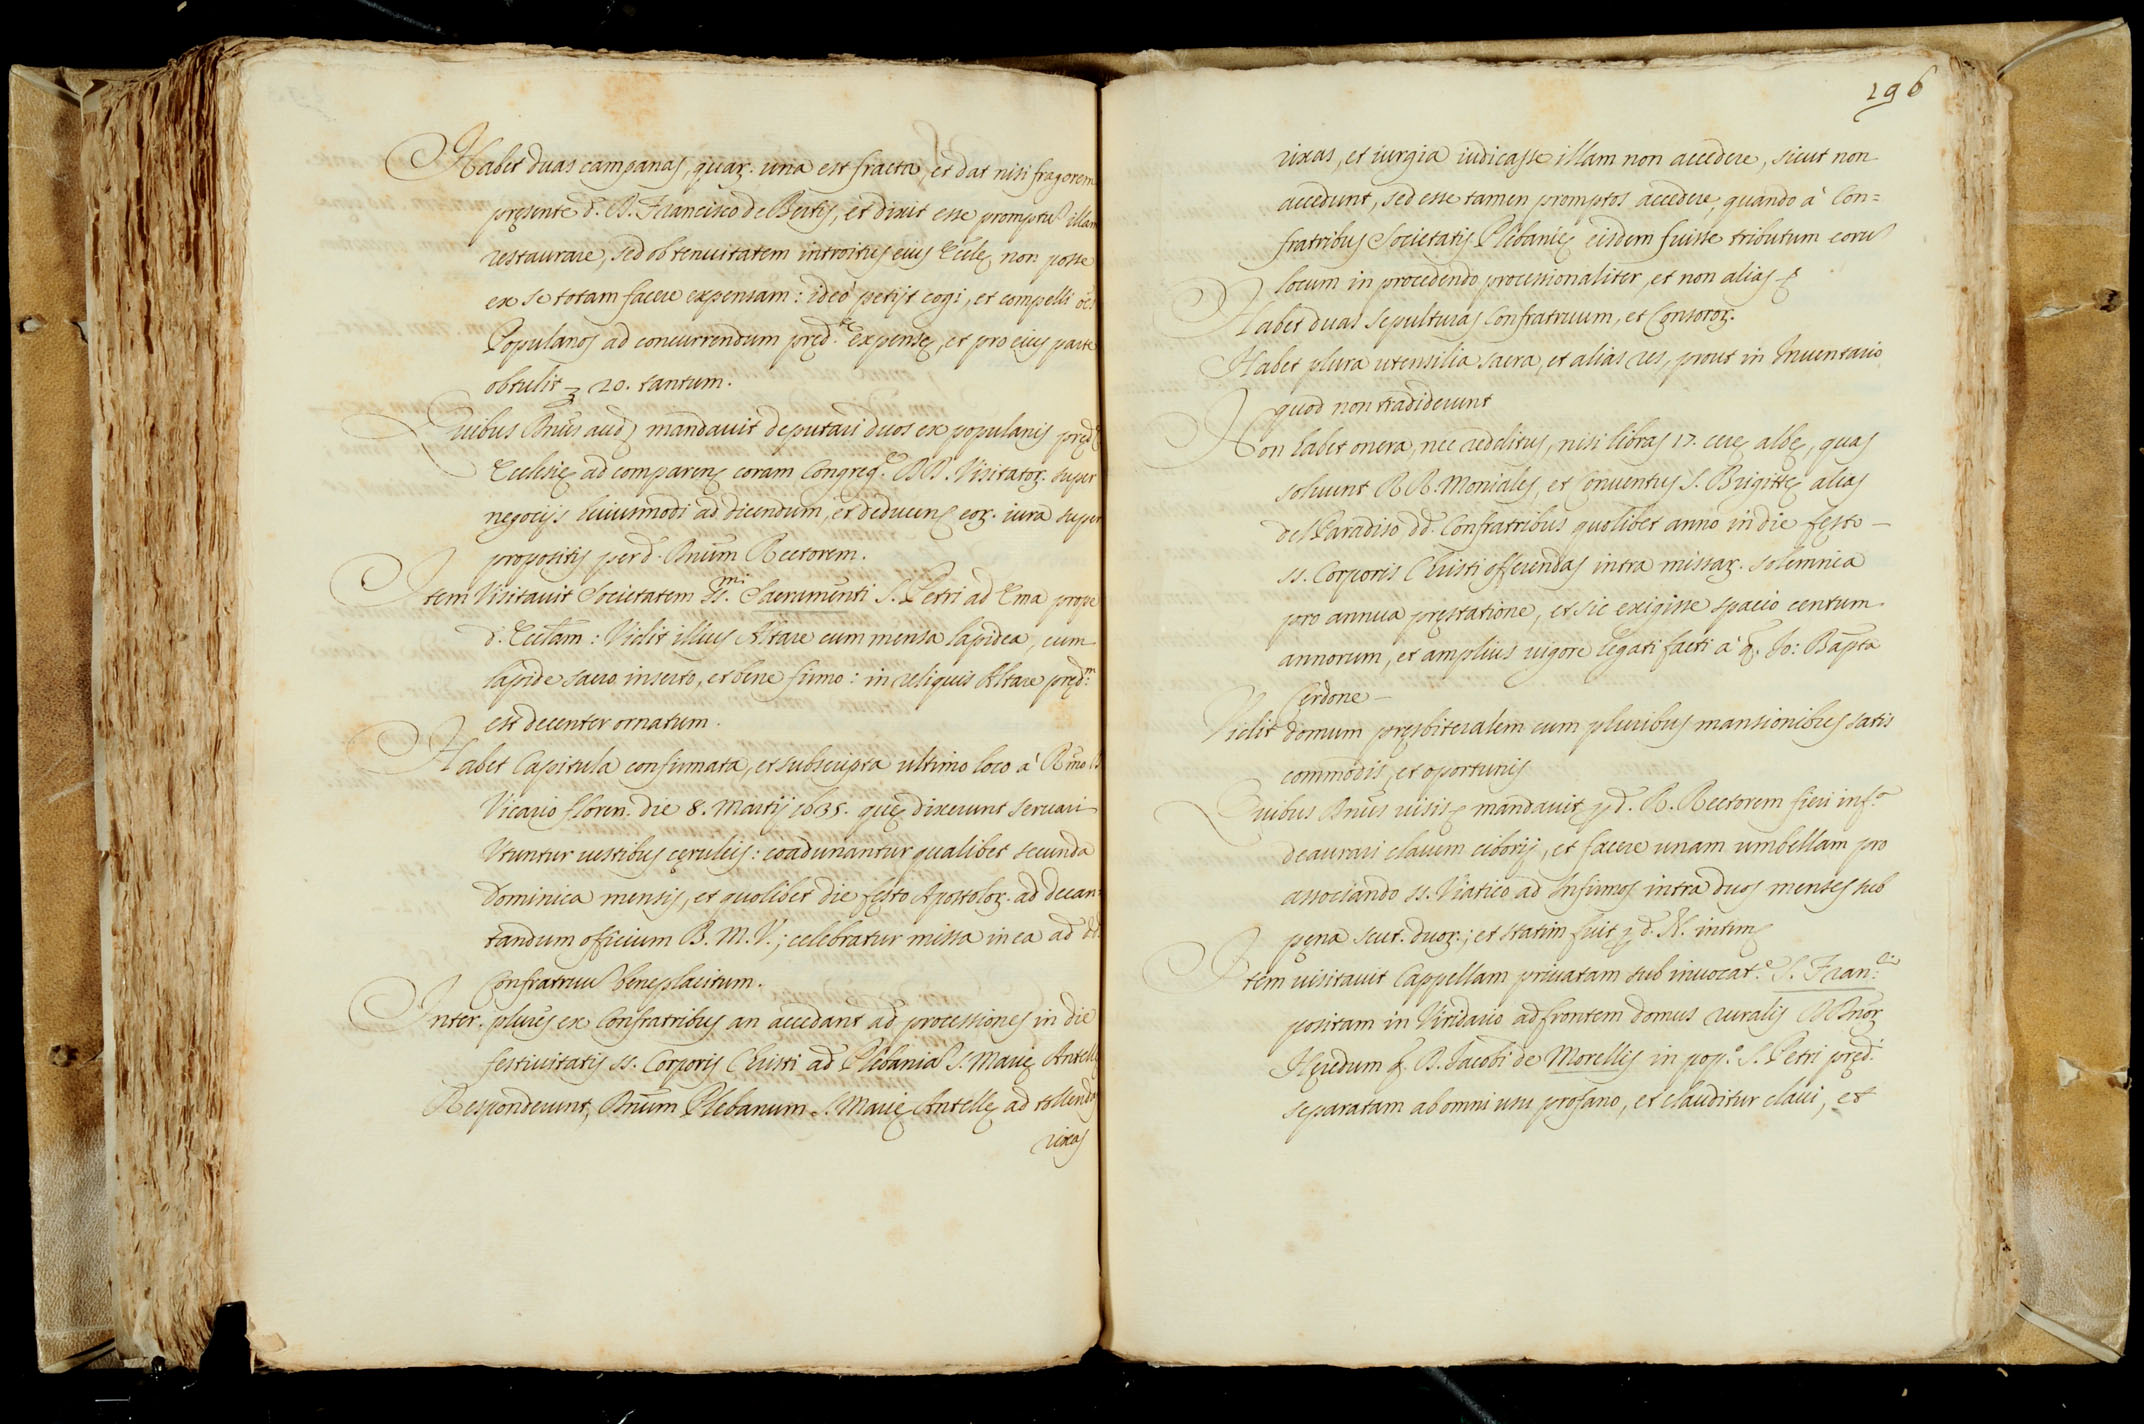 Habet duas campanas, quar. una est fracta, et dat nisi fragorem
pręsente d. R. Francisco de Bertis, et dixit esse promptũ illam
restaurare, sed ob tenuitatem introitus eius Eccle non posse
ex se totam facere expensam: ideo petijt cogi, et compelli oẽs
Populanos ad concurrendum pręd.ę expensę, et pro eius parte
obtulit 20. tantum.
Quibus Dñus aud. mandavit deputari duos ex populanis pręd.ę
Ecclesię ad comparen. coram Congreg.e DD. Visitator. super
negocijs huiusmodi ad dicendum, et deducen. eor. iura super
propositis per d. Dñum Rectorem.
Item Visitavit Societatem SS.mi Sacramenti S. Petri ad Ema prope
d. Ecclam: Vidit illius Altare cum mensa lapidea, cum
lapide sacro inserto, et bene firmo: in reliquis Altare pręd.m
est decenter ornatum.
Habet Capitula confirmata, et subscripta ultimo loco à R.mo D.
Vicario floren. die 8. Martij 1635. quę dixerunt servari
Utuntur vestibus cęruleis: coadunantur qualibet secunda
Dominica mensis, et quolibet die festo Apostolor. ad decan-
tandum officium B. M. V.; celebratur missa in ea ad dd.
Confratruũ beneplacitum.
Inter. plures ex Confratribus an accedant ad processiones in die
festivitatis SS. Corporis Christi ad Plebaniã S. Marię Antellę
Responderunt, Dñum Plebanum S. Marię Antellę ad tollendas
rixas
296
rixas, et iurgia iudicasse illam non accedere, sicut non
accedunt, sed esse tamen promptos accedere, quando à Con=
fratribus Societatis Plebanię eisdem fuisse tributum eorũ
locum in procedendo processionaliter, et non alias
Habet duas sepulturas Confratruum, et Consoror.
Habet plura utensilia sacra, et alias res, prout in Inventario
quod non tradiderunt
Non habet onera, nec redditus, nisi libras 17. cerę albę, quas
solvunt RR. Moniales, et Conventus S. Brigittę alias
del Paradiso dd. Confratribus quolibet anno in die festo
ss. Corporis Christi offerendas intra missar. solemnia
pro annua pręstatione, et sic exigisse spacio centum
annorum, et amplius vigore legati facti à q. Jo: Bapta
Cerdone
Vidit domum pręsbiteralem cum pluribus mansionibus satis
commodis, et oportunis
Quibus Dñus visis mandavit p d. R. Rectorem fieri inf.a
deaurari clavem ciborij, et facere unam umbellam pro
associando ss. Viatico ad Infirmos intra duos menses sub
pena scut. duor.; et statim fuit p d. N. intim.
Item visitavit Cappellam privatam sub invocat.e S. Fran.ci
positam in Viridario ad frontem domus ruralis DDnor
Hęredum q. D. Jacobi de Morellis in pop.o S. Petri pręd.i
separatam ab omni usu profano, et clauditur clavi, et